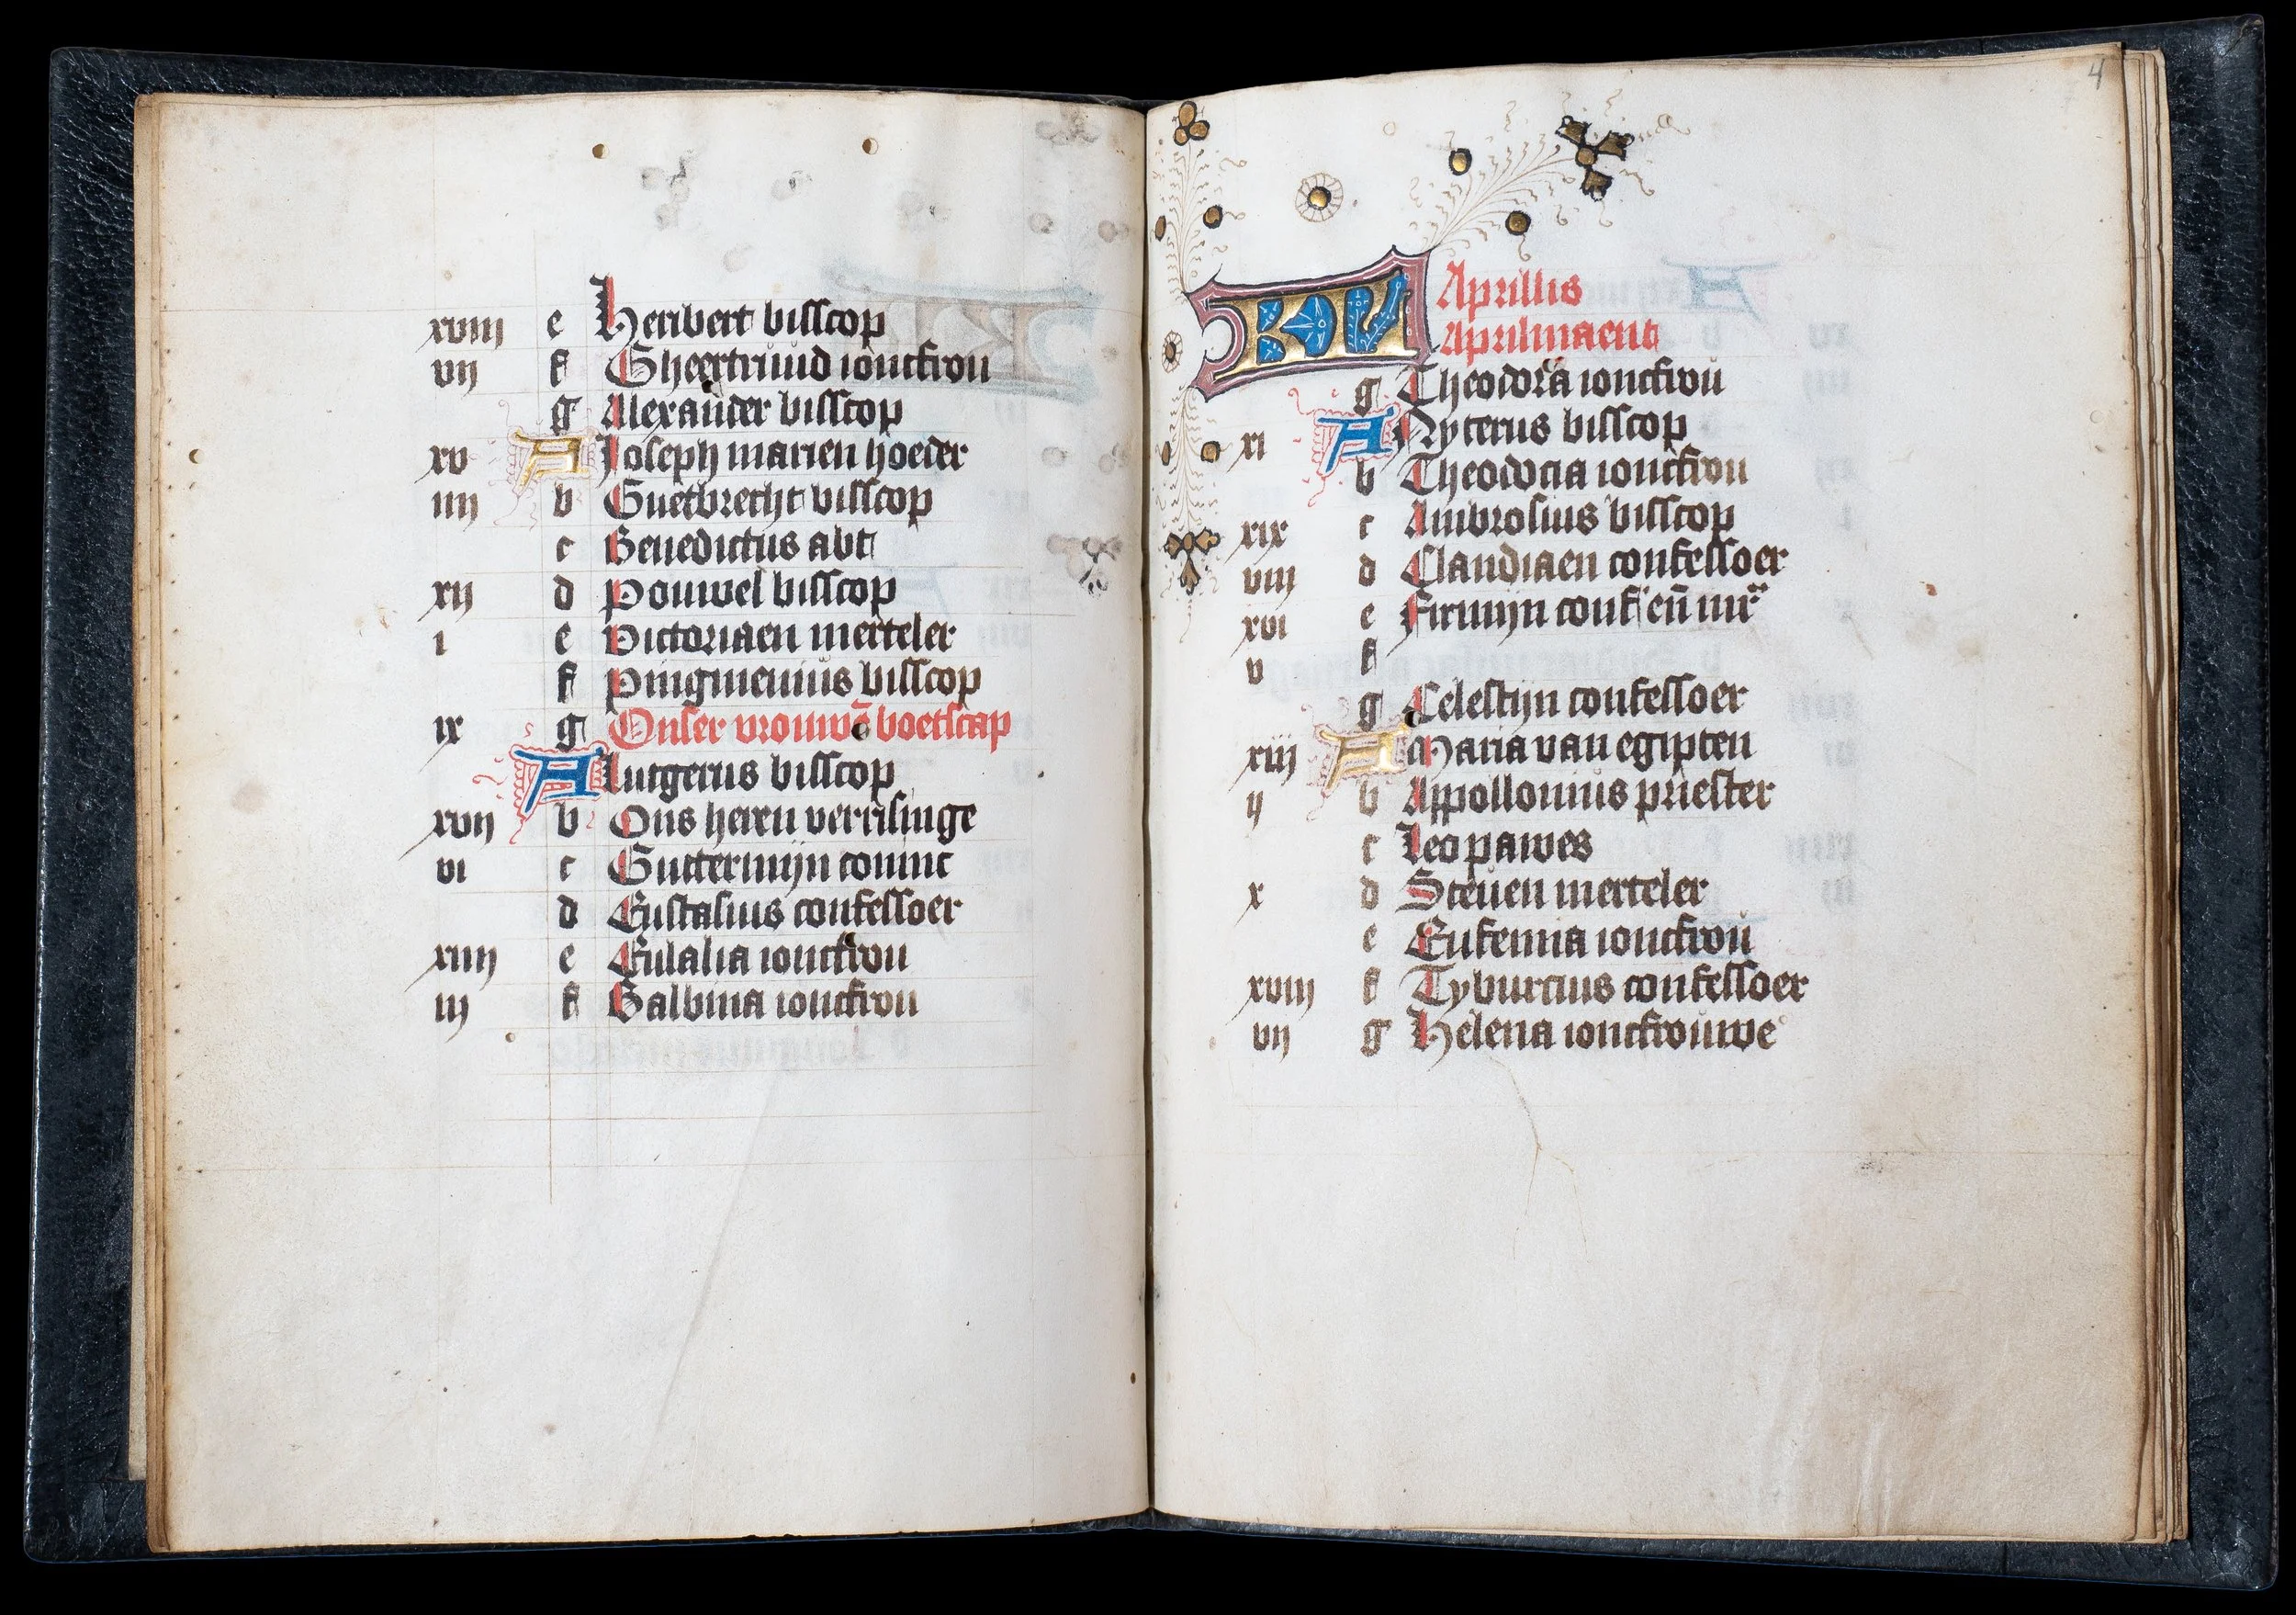 xviii e Heribert bisscop
vij f Gheertruud ioncfrou
g Alexander bisscop
xv A Joseph marien hoeder
iiij b Guetbrecht bisscop
c Benedictus abt
xij d Pouwel bisscop
i e Victoriaen merteler
f Pingmenius bisscop
ix g Onser vrouwē boetscap
A Lutgerus bisscop
xvij b Ons heren verrisinge
vi c Guttermijn coninc
d Eustasius confessoer
xiiij e Eulalia ioncfrou
iij f Balbina ioncfrou
4
KL Aprillis
Aprilmaent
g Theodora ioncfrou
xi A Nycerus bisscop
b Theodocia ioncfrou
xix c Ambrosius bisscop
viij d Claudiaen confessoer
xvi e Firmijn conf eñ mr
v f
g Celestijn confessoer
xiij A Maria van egipten
ij b Appollonius priester
c Leo pawes
x d Steuen merteler
e Eufemia ioncfrou
xviij f Tyburcius confessoer
vij g Helena ioncfrouwe